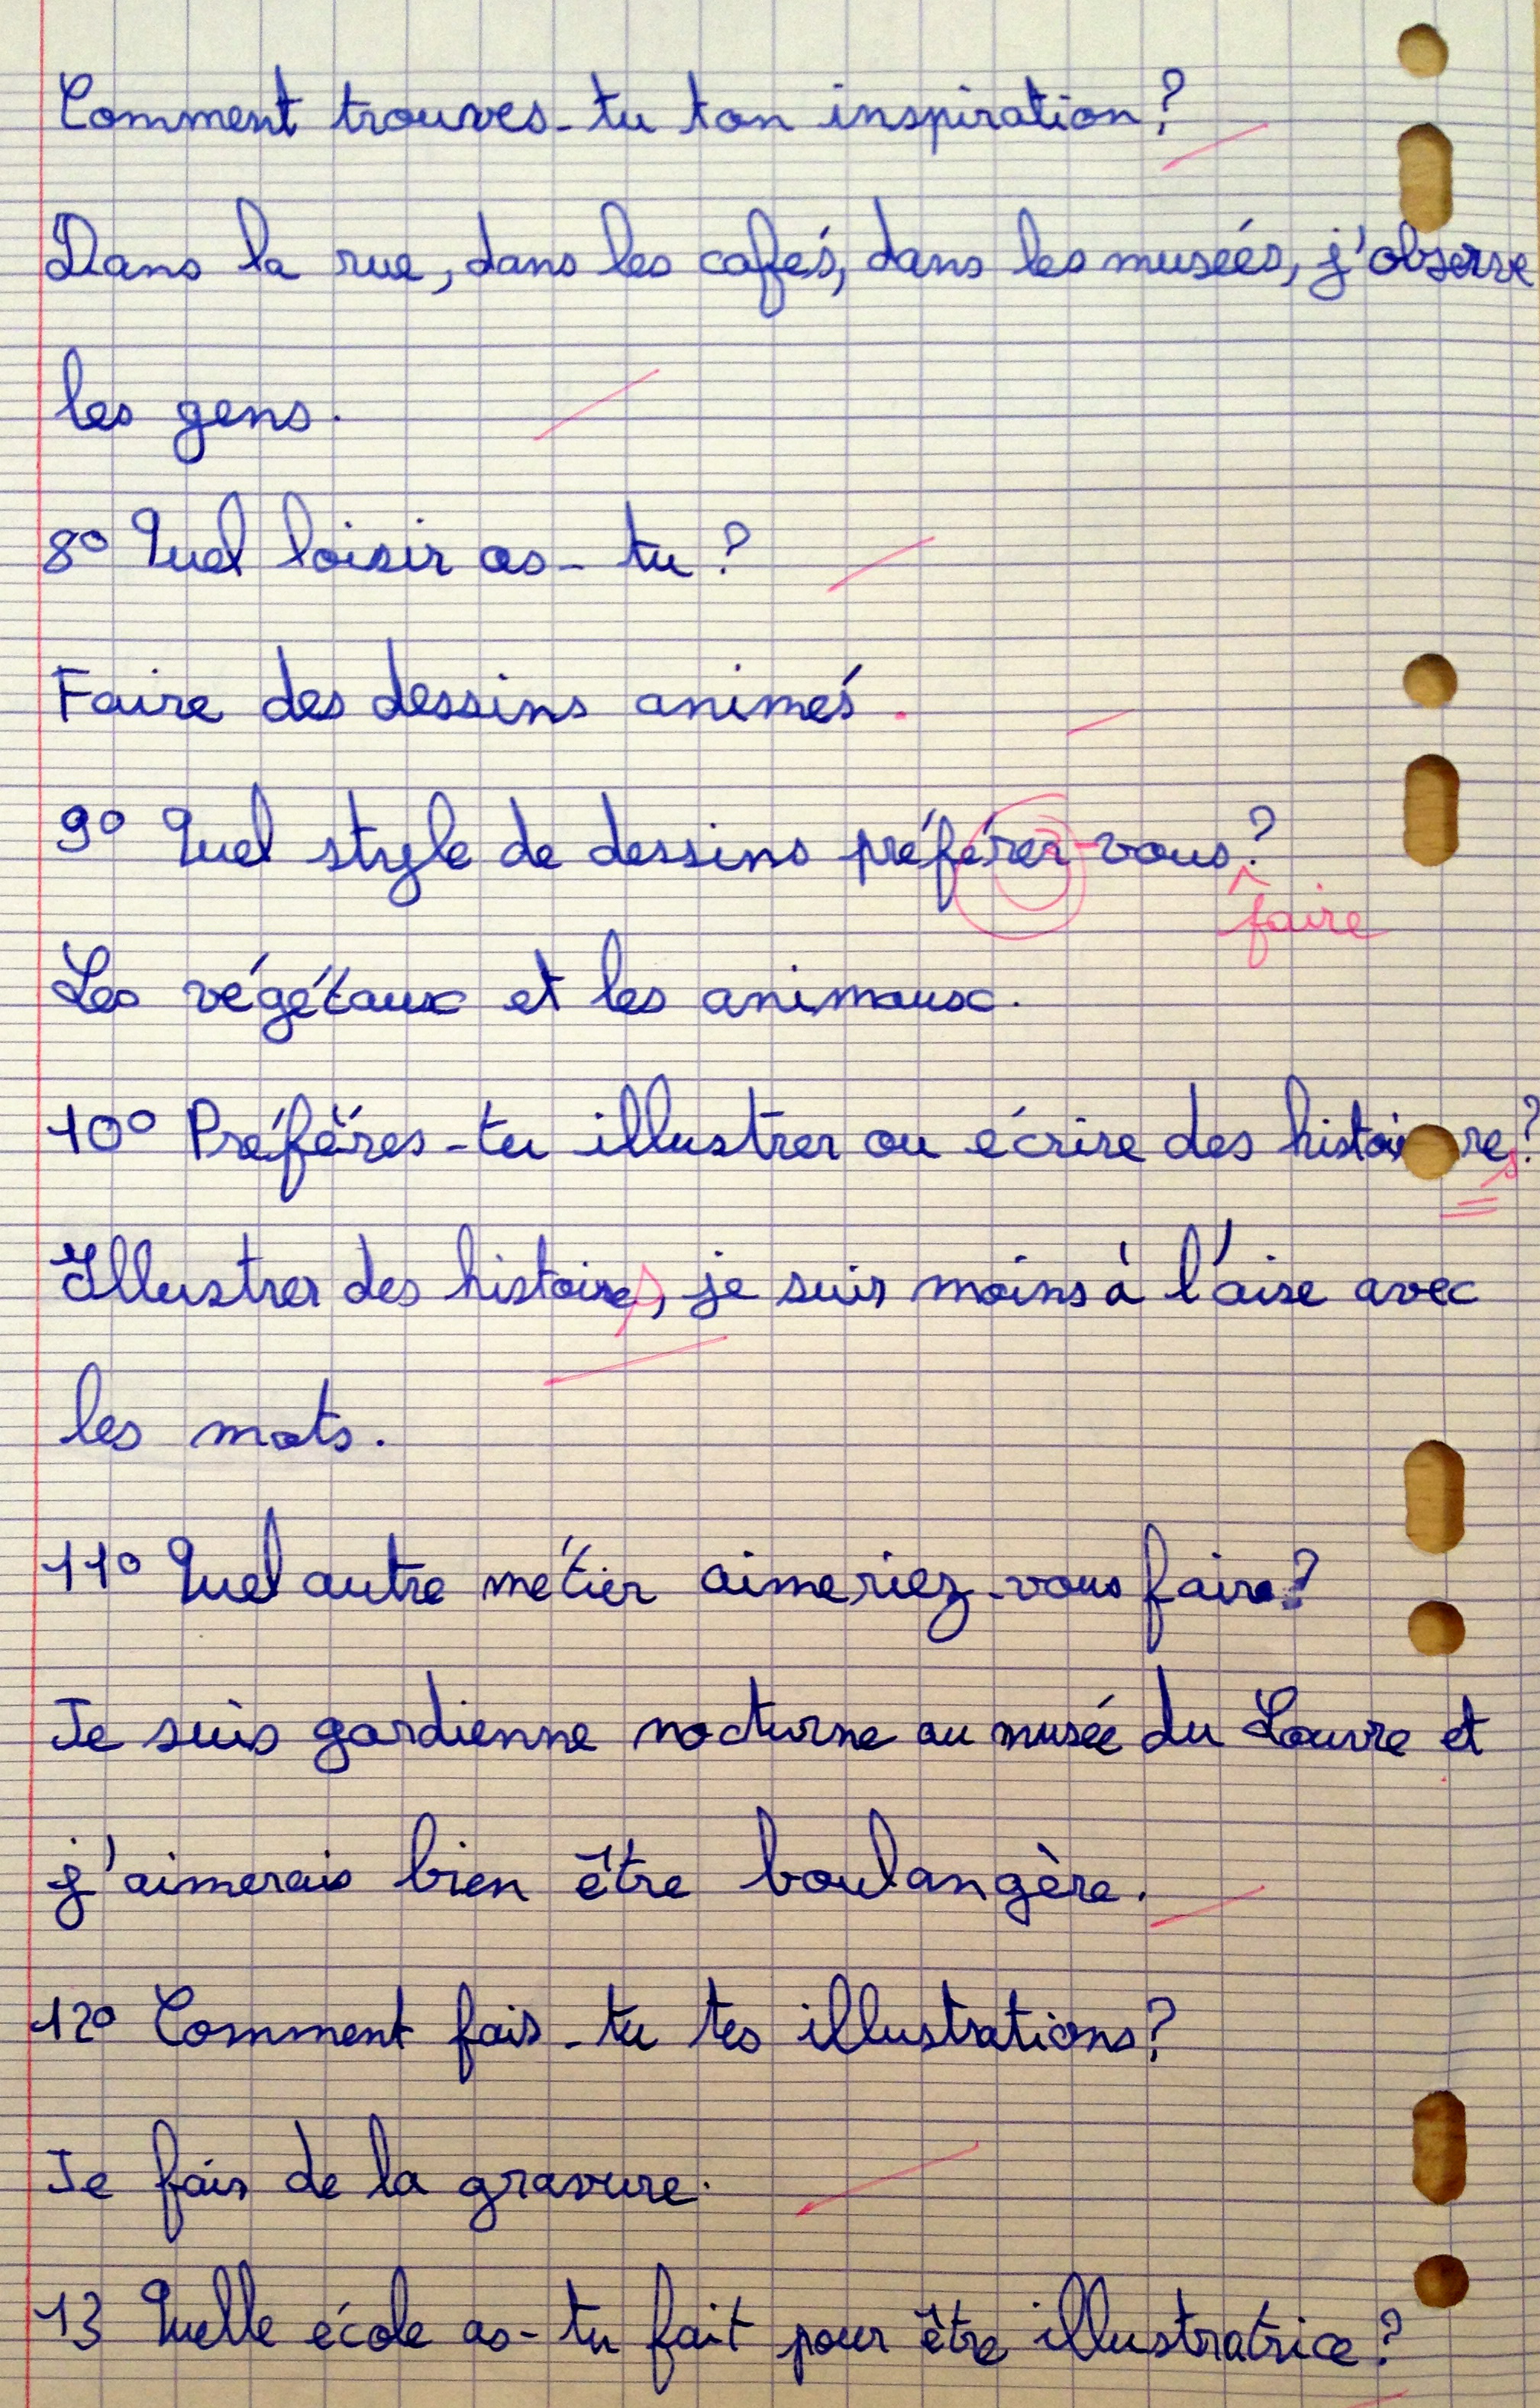 Comment trouves-tu ton inspiration?
Dans la rue, dans les cafés, dans les musées, j'observe
les gens.
8° Quel loisir as-tu?
Faire des dessins animés.
9° Quel style de dessins préférez-vous?
faire
Les végétaux et les animaux.
10° Préfères-tu illustrer ou écrire des histoires?
Illustrer des histoires, je suis moins à l'aise avec
les mots.
11° Quel autre métier aimeriez-vous faire?
Je suis gardienne nocturne au musée du Louvre et
j'aimerais bien être boulangère.
12° Comment fais-tu tes illustrations?
Je fais de la gravure.
13 Quelle école as-tu fait pour être illustratrice?